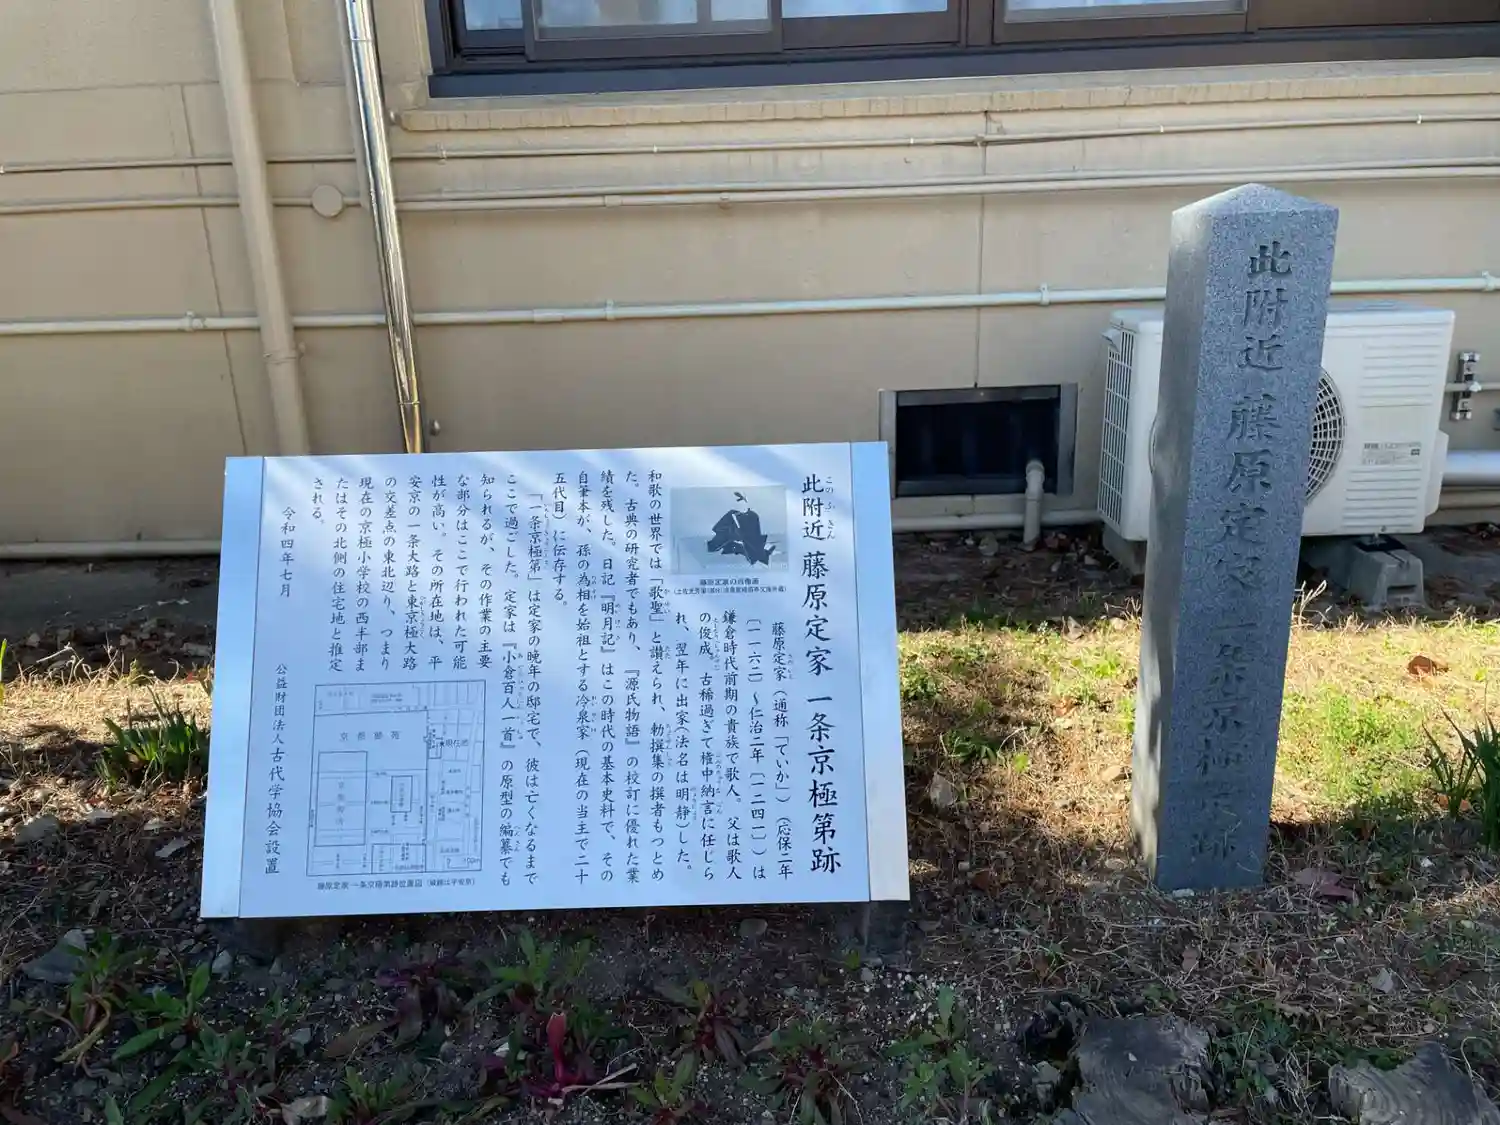 此附近 藤原定家 一条京極第跡
藤原定家(通称「ていか」)(応保二年
〔一一六二〕～仁治二年〔一二四一〕)は
鎌倉時代前期の貴族で歌人。父は歌人
の俊成。古稀過ぎて権中納言に任じら
れ、翌年に出家(法名は明静)した。
和歌の世界では「歌聖」と讃えられ、勅撰集の撰者もつとめ
た。古典の研究者でもあり、『源氏物語』の校訂に優れた業
績を残した。日記『明月記』はこの時代の基本史料で、その
自筆本が、孫の為相を始祖とする冷泉家(現在の当主で二十
五代目)に伝存する。
「一条京極第」は定家の晩年の邸宅で、彼は亡くなるまで
ここで過ごした。定家は『小倉百人一首』の原型の編纂でも
知られるが、その作業の主要
な部分はここで行われた可能
性が高い。その所在地は、平
安京の一条大路と東京極大路
の交差点の東北辺り、つまり
現在の京極小学校の西半部ま
たはその北側の住宅地と推定
される。
令和四年七月
公益財団法人古代学協会設置
藤原定家の肖像画
京都御苑
京都御所
★現在地
藤原定家 一条京極第跡位置図(破線は平安京)
此附近 藤原定家 一条京極第跡